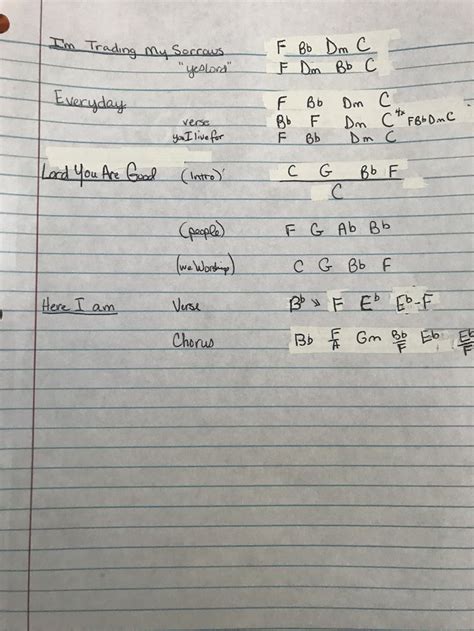 I'm Trading My Sorrows F Bb Dm C
"yes Lord" F Dm Bb C
Everyday F Bb Dm C
verse Bb F Dm C 4x F Bb Dm C
yes I live for F Bb Dm C
Lord You Are Good (Intro) C G Bb F
C
(people) F G Ab Bb
(we Worship) C G Bb F
Here I am Verse Bb F Eb Eb-F
Chorus Bb F/A Gm Bb/F Eb Eb/F